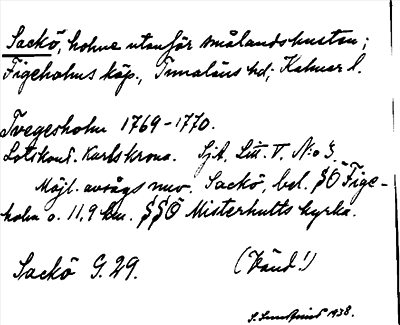 Sackö, holme utanför smålandskusten;
Figeholms köp., Tunaläns hd; Kalmar l.
Tvegesholm 1769-1770.
Lotskont. Karlskrona. Sjk. Litt. V. N:o 3.
Möjl. avsågs nuv. Sackö, bel. SÖ Fige-
holm o. 11,9 km. SSÖ Misterhults kyrka.
Sackö G. 29.
(Vänd!)
1938.